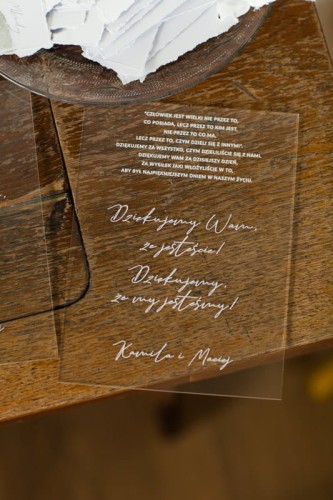 "CZŁOWIEK JEST WIELKI NIE PRZEZ TO,
CO POSIADA, LECZ PRZEZ TO KIM JEST,
NIE PRZEZ TO CO MA,
LECZ PRZEZ TO, CZYM DZIELI SIĘ Z INNYMI".
DZIĘKUJEMY ZA WSZYSTKO, CZYM DZIELILIŚCIE SIĘ Z NAMI.
DZIĘKUJEMY WAM ZA DZISIEJSZY DZIEŃ,
ZA WYSIŁEK JAKI WŁOŻYLIŚCIE W TO,
ABY BYŁ NAJPIĘKNIEJSZYM DNIEM W NASZYM ŻYCIU.
Dziękujemy Wam,
że jesteście!
Dziękujemy,
że my jesteśmy!
Kamila i Maciej